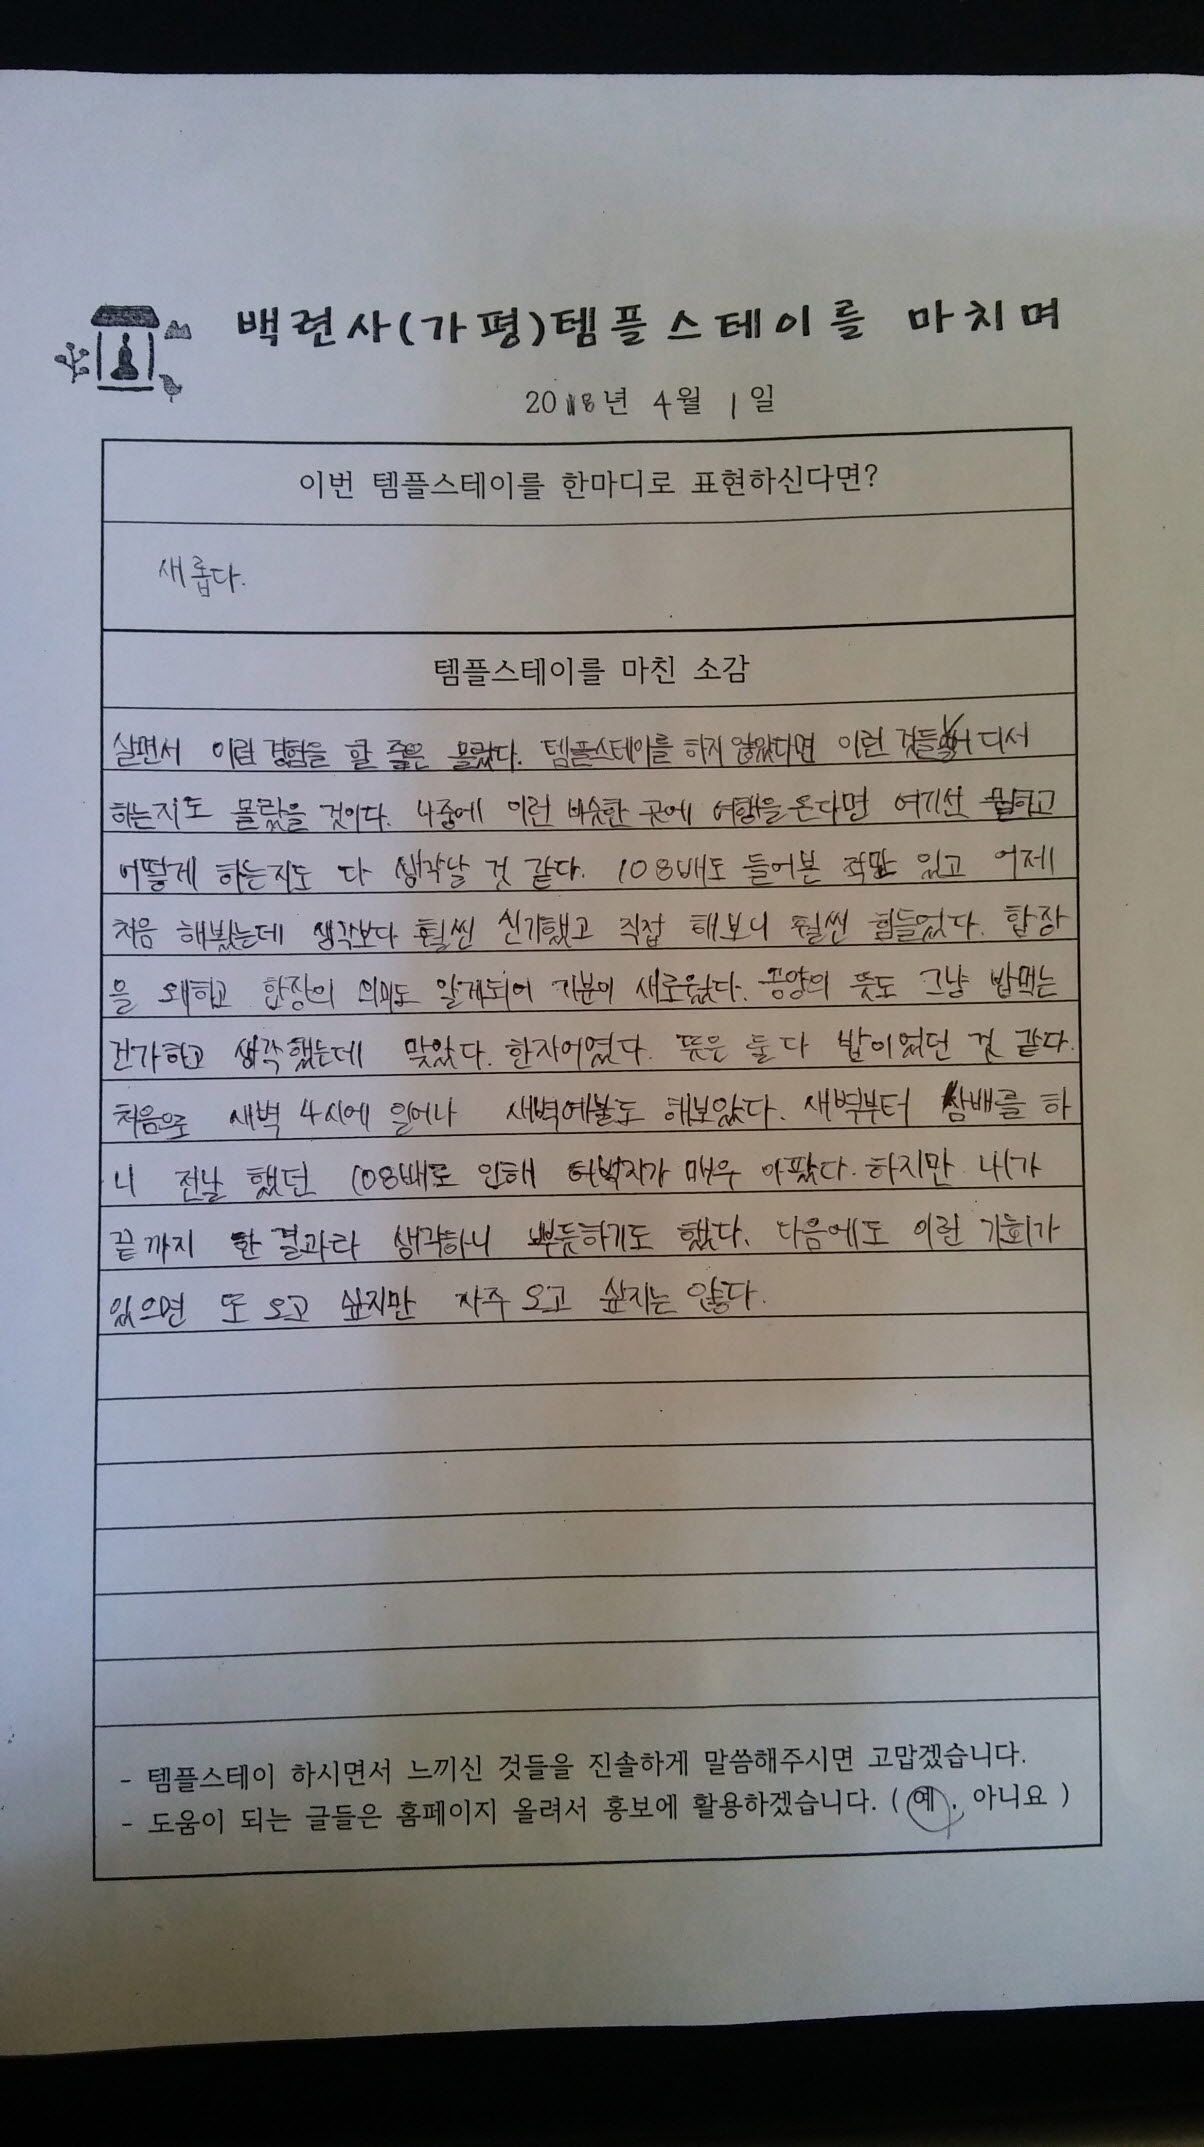 백련사(가평)템플스테이를 마치며
2018년 4월 1일
이번 템플스테이를 한마디로 표현하신다면?
새롭다.
템플스테이를 마친 소감
살면서 이런 경험을 할 줄은 몰랐다. 템플스테이를 하지 않았다면 이런 것들을 어디서
하는지도 몰랐을 것이다. 나중에 이런 비슷한 곳에 여행을 온다면 여기선 뭘하고
어떻게 하는지도 다 생각날 것 같다. 108배도 들어본 적만 있고 어제
처음 해봤는데 생각보다 훨씬 신기했고 직접 해보니 훨씬 힘들었다. 합장
을 왜하고 합장의 의미도 알게되어 기분이 새로웠다. 공양의 뜻도 그냥 밥먹는
건가하고 생각했는데 맞았다. 한자어였다. 뜻은 둘 다 밥이었던 것 같다.
처음으로 새벽 4시에 일어나 새벽예불도 해보았다. 새벽부터 삼배를 하
니 전날 했던 108배로 인해 허벅지가 매우 아팠다. 하지만 내가
끝까지 한 결과라 생각하니 뿌듯하기도 했다. 다음에도 이런 기회가
있으면 또 오고 싶지만 자주 오고 싶지는 않다.
- 템플스테이 하시면서 느끼신 것들을 진솔하게 말씀해주시면 고맙겠습니다.
- 도움이 되는 글들은 홈페이지 올려서 홍보에 활용하겠습니다. ( 예 , 아니요 )